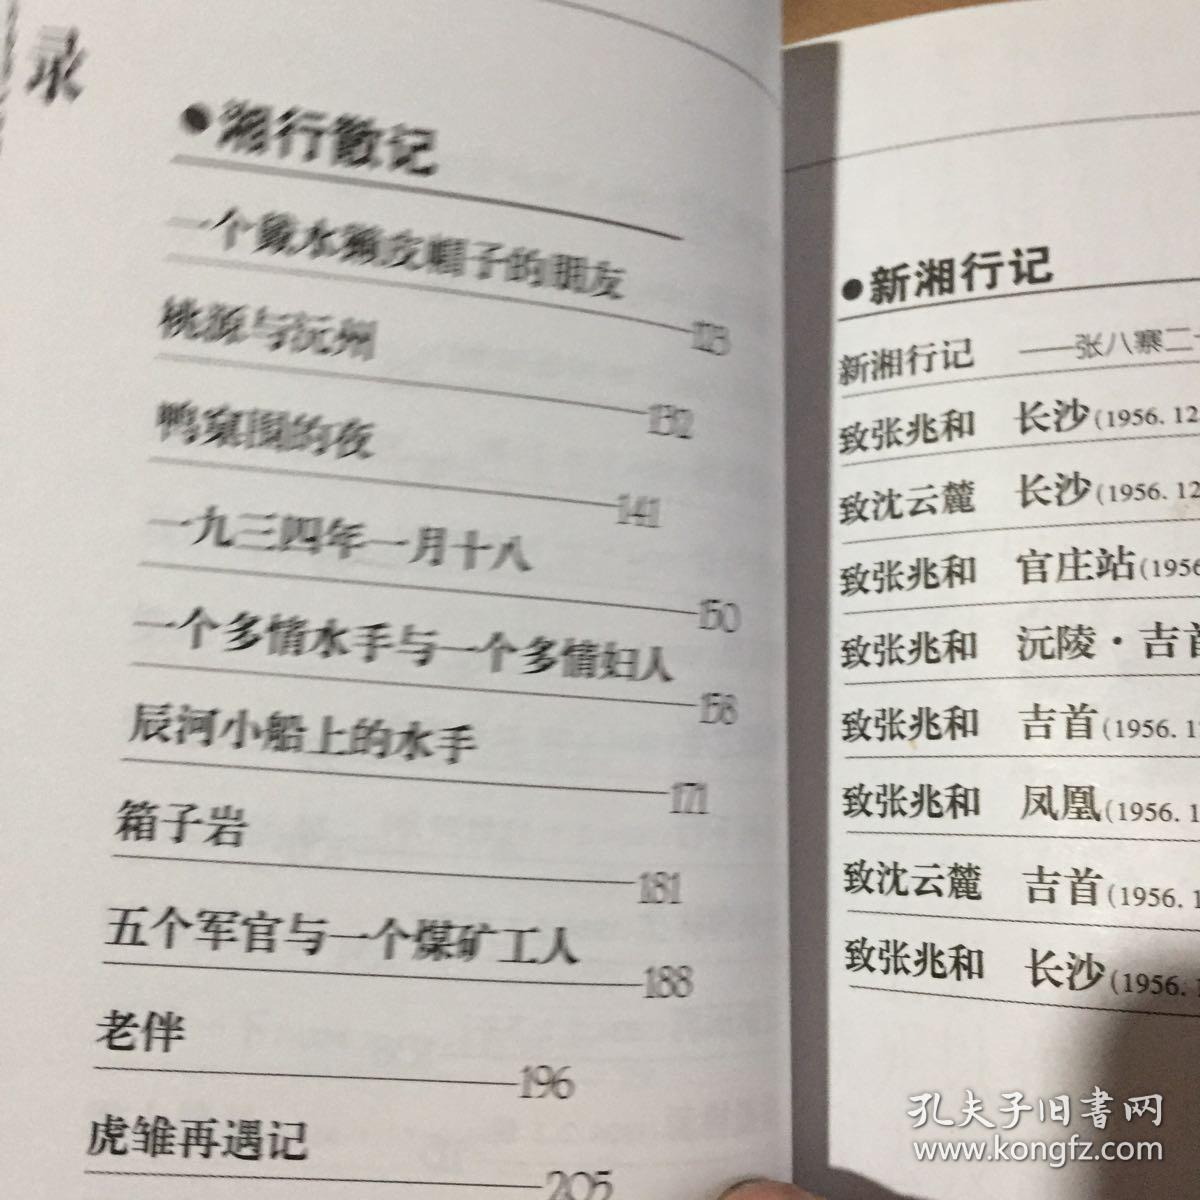 录
●湘行散记
一个戴水獭皮帽子的朋友
123
桃源与沅州
132
鸭窠围的夜
141
一九三四年一月十八
150
一个多情水手与一个多情妇人
158
辰河小船上的水手
171
箱子岩
181
五个军官与一个煤矿工人
188
老伴
196
虎雏再遇记
205
●新湘行记
新湘行记 ——张八寨二十
致张兆和 长沙(1956.12
致沈云麓 长沙(1956.12
致张兆和 官庄站(1956
致张兆和 沅陵·吉首
致张兆和 吉首(1956.1
致张兆和 凤凰(1956.1
致沈云麓 吉首(1956.1
致张兆和 长沙(1956.1
孔夫子旧书网
www.kongfz.com